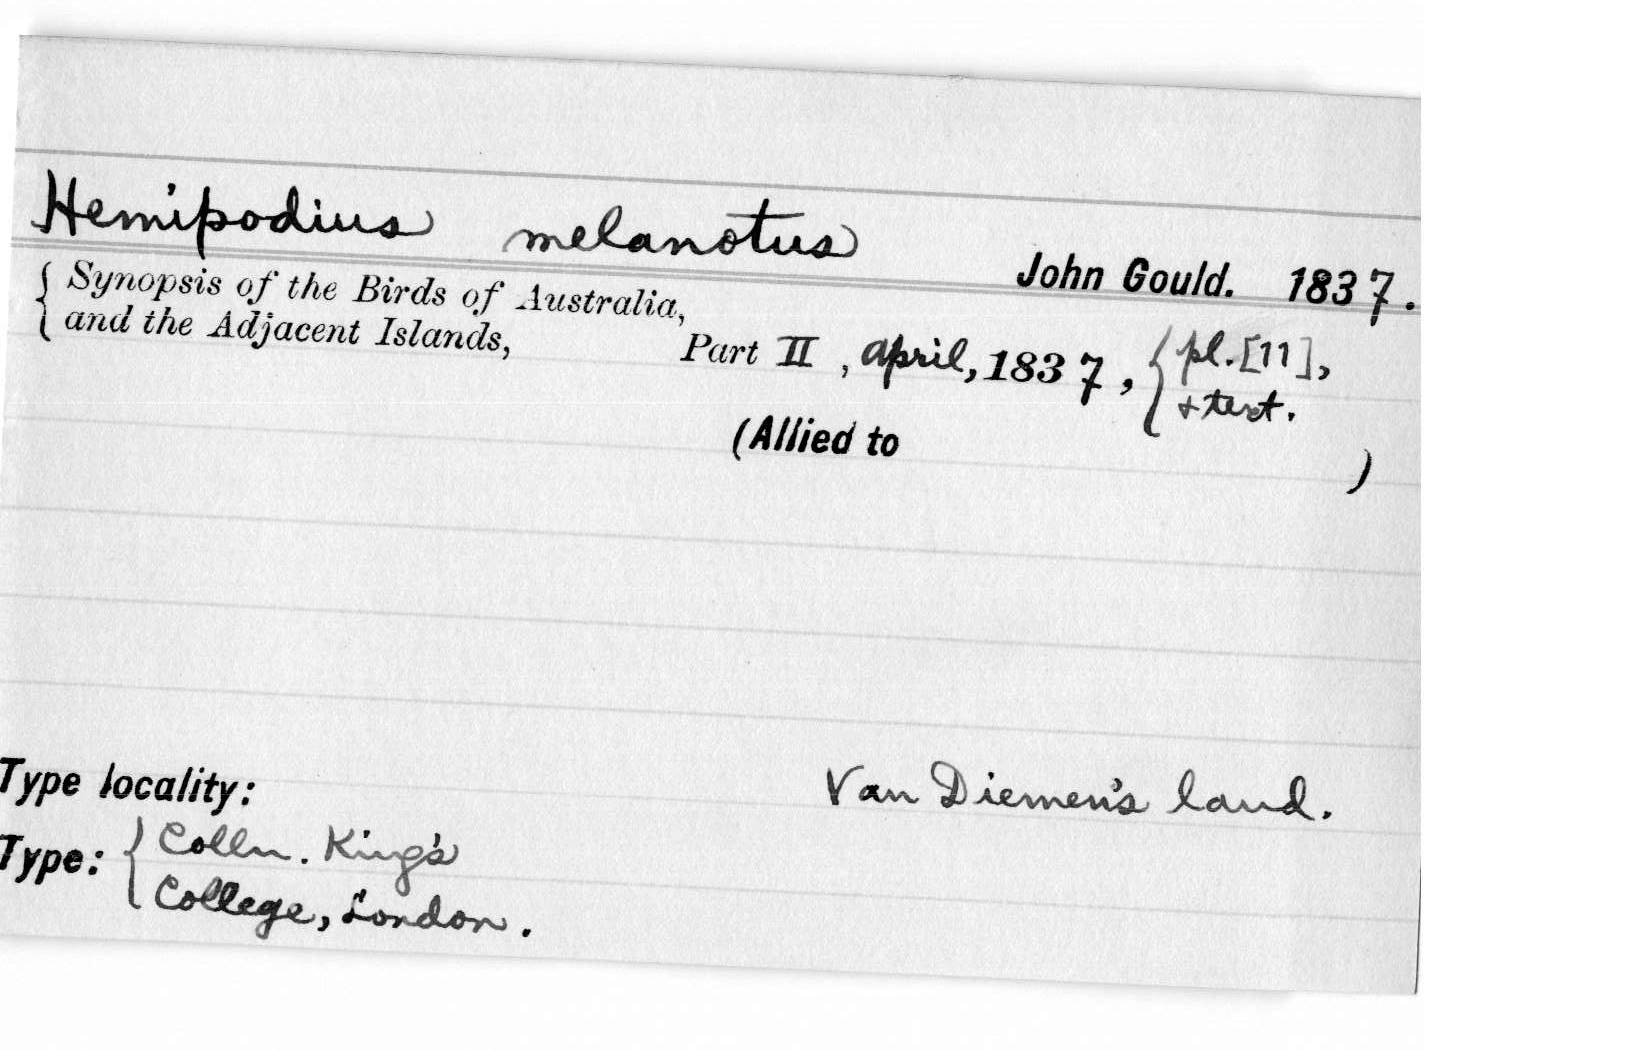 Hemipodius melanotus
John Gould. 1837.
{ Synopsis of the Birds of Australia,
and the Adjacent Islands, Part II, April, 1837, { pl. [11],
+ text.
(Allied to )
Type locality: Van Diemen's land.
Type: { Colln. King's
College, London.